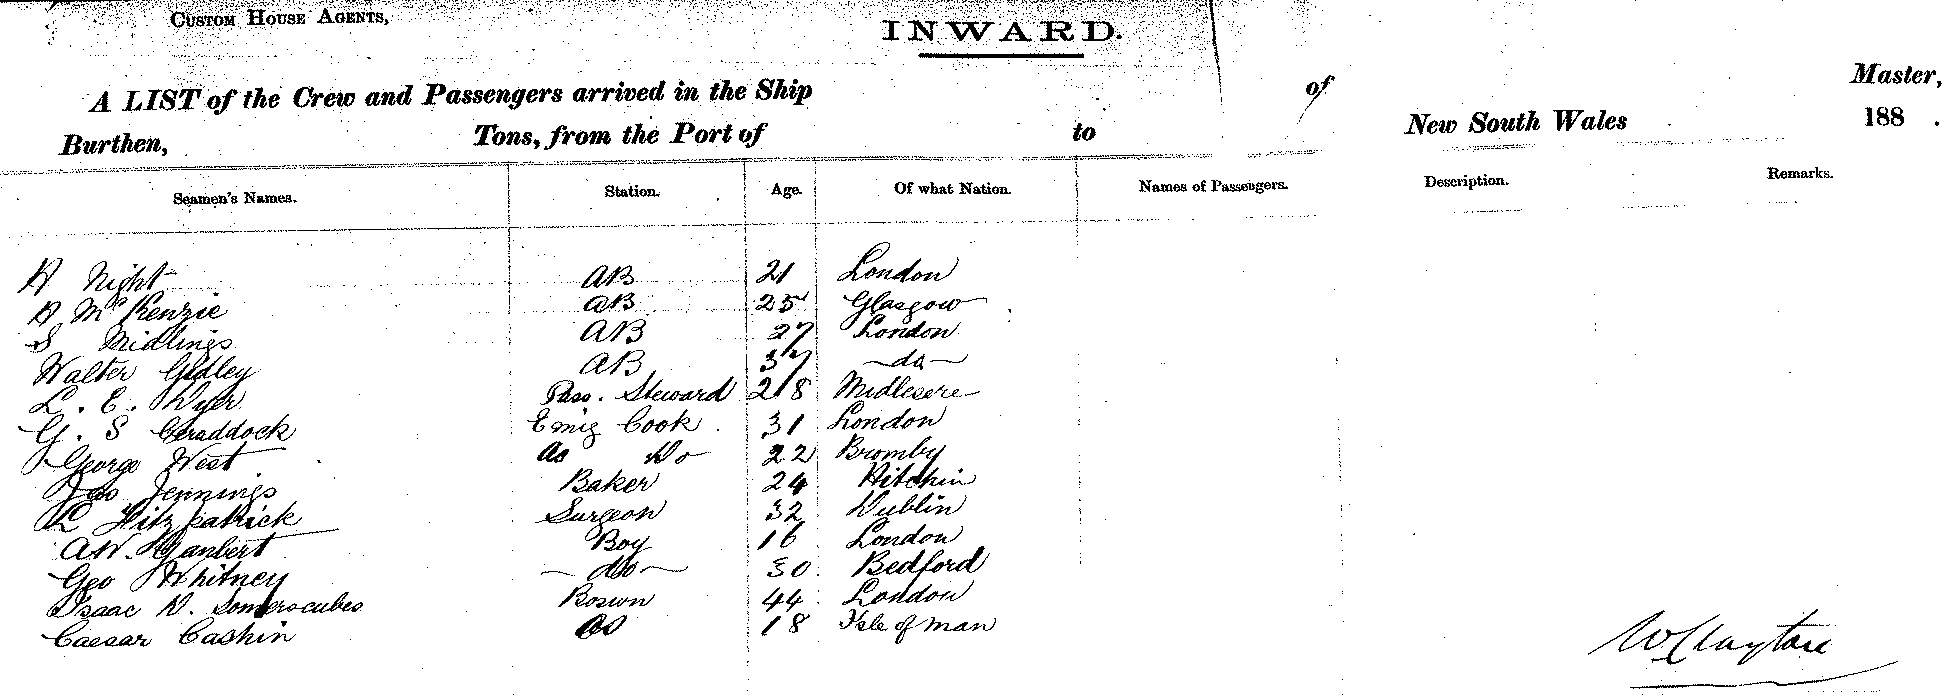 CUSTOM HOUSE AGENTS,
INWARD.
A LIST of the Crew and Passengers arrived in the Ship of Master,
Burthen, Tons, from the Port of to New South Wales 188 .
Seamen's Names. Station. Age. Of what Nation. Names of Passengers. Description. Remarks.
A Night AB 21 London
A McKenzie AB 25 Glasgow
S Midlings AB 27 London
Walter Gidley AB 37 do
L. E. Dyer Pass. Steward 28 Midlesere
G. S Craddock Emig Cook 31 London
George West As Do 22 Bromby
Jas Jennings Baker 24 Hitchin
L Fitzpatrick Surgeon 32 Dublin
A.W. Boy 16 London
Geo Whitney do 30 Bedford
Isaac D. Somerscubes Boswn 44 London
Caesar Cashin 18 Isle of Man
W Clayton